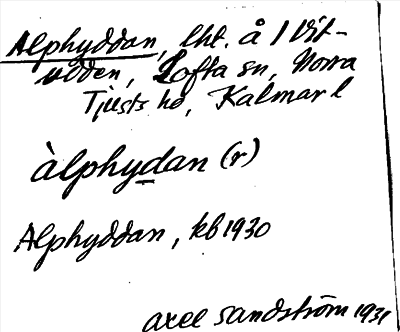 Alphyddan, lht. å 1 Vit-
vidden, Lofta sn, Norra
Tjusts hd, Kalmar l
àlphydan (r)
Alphyddan, kb 1930
Axel Sandström 1931